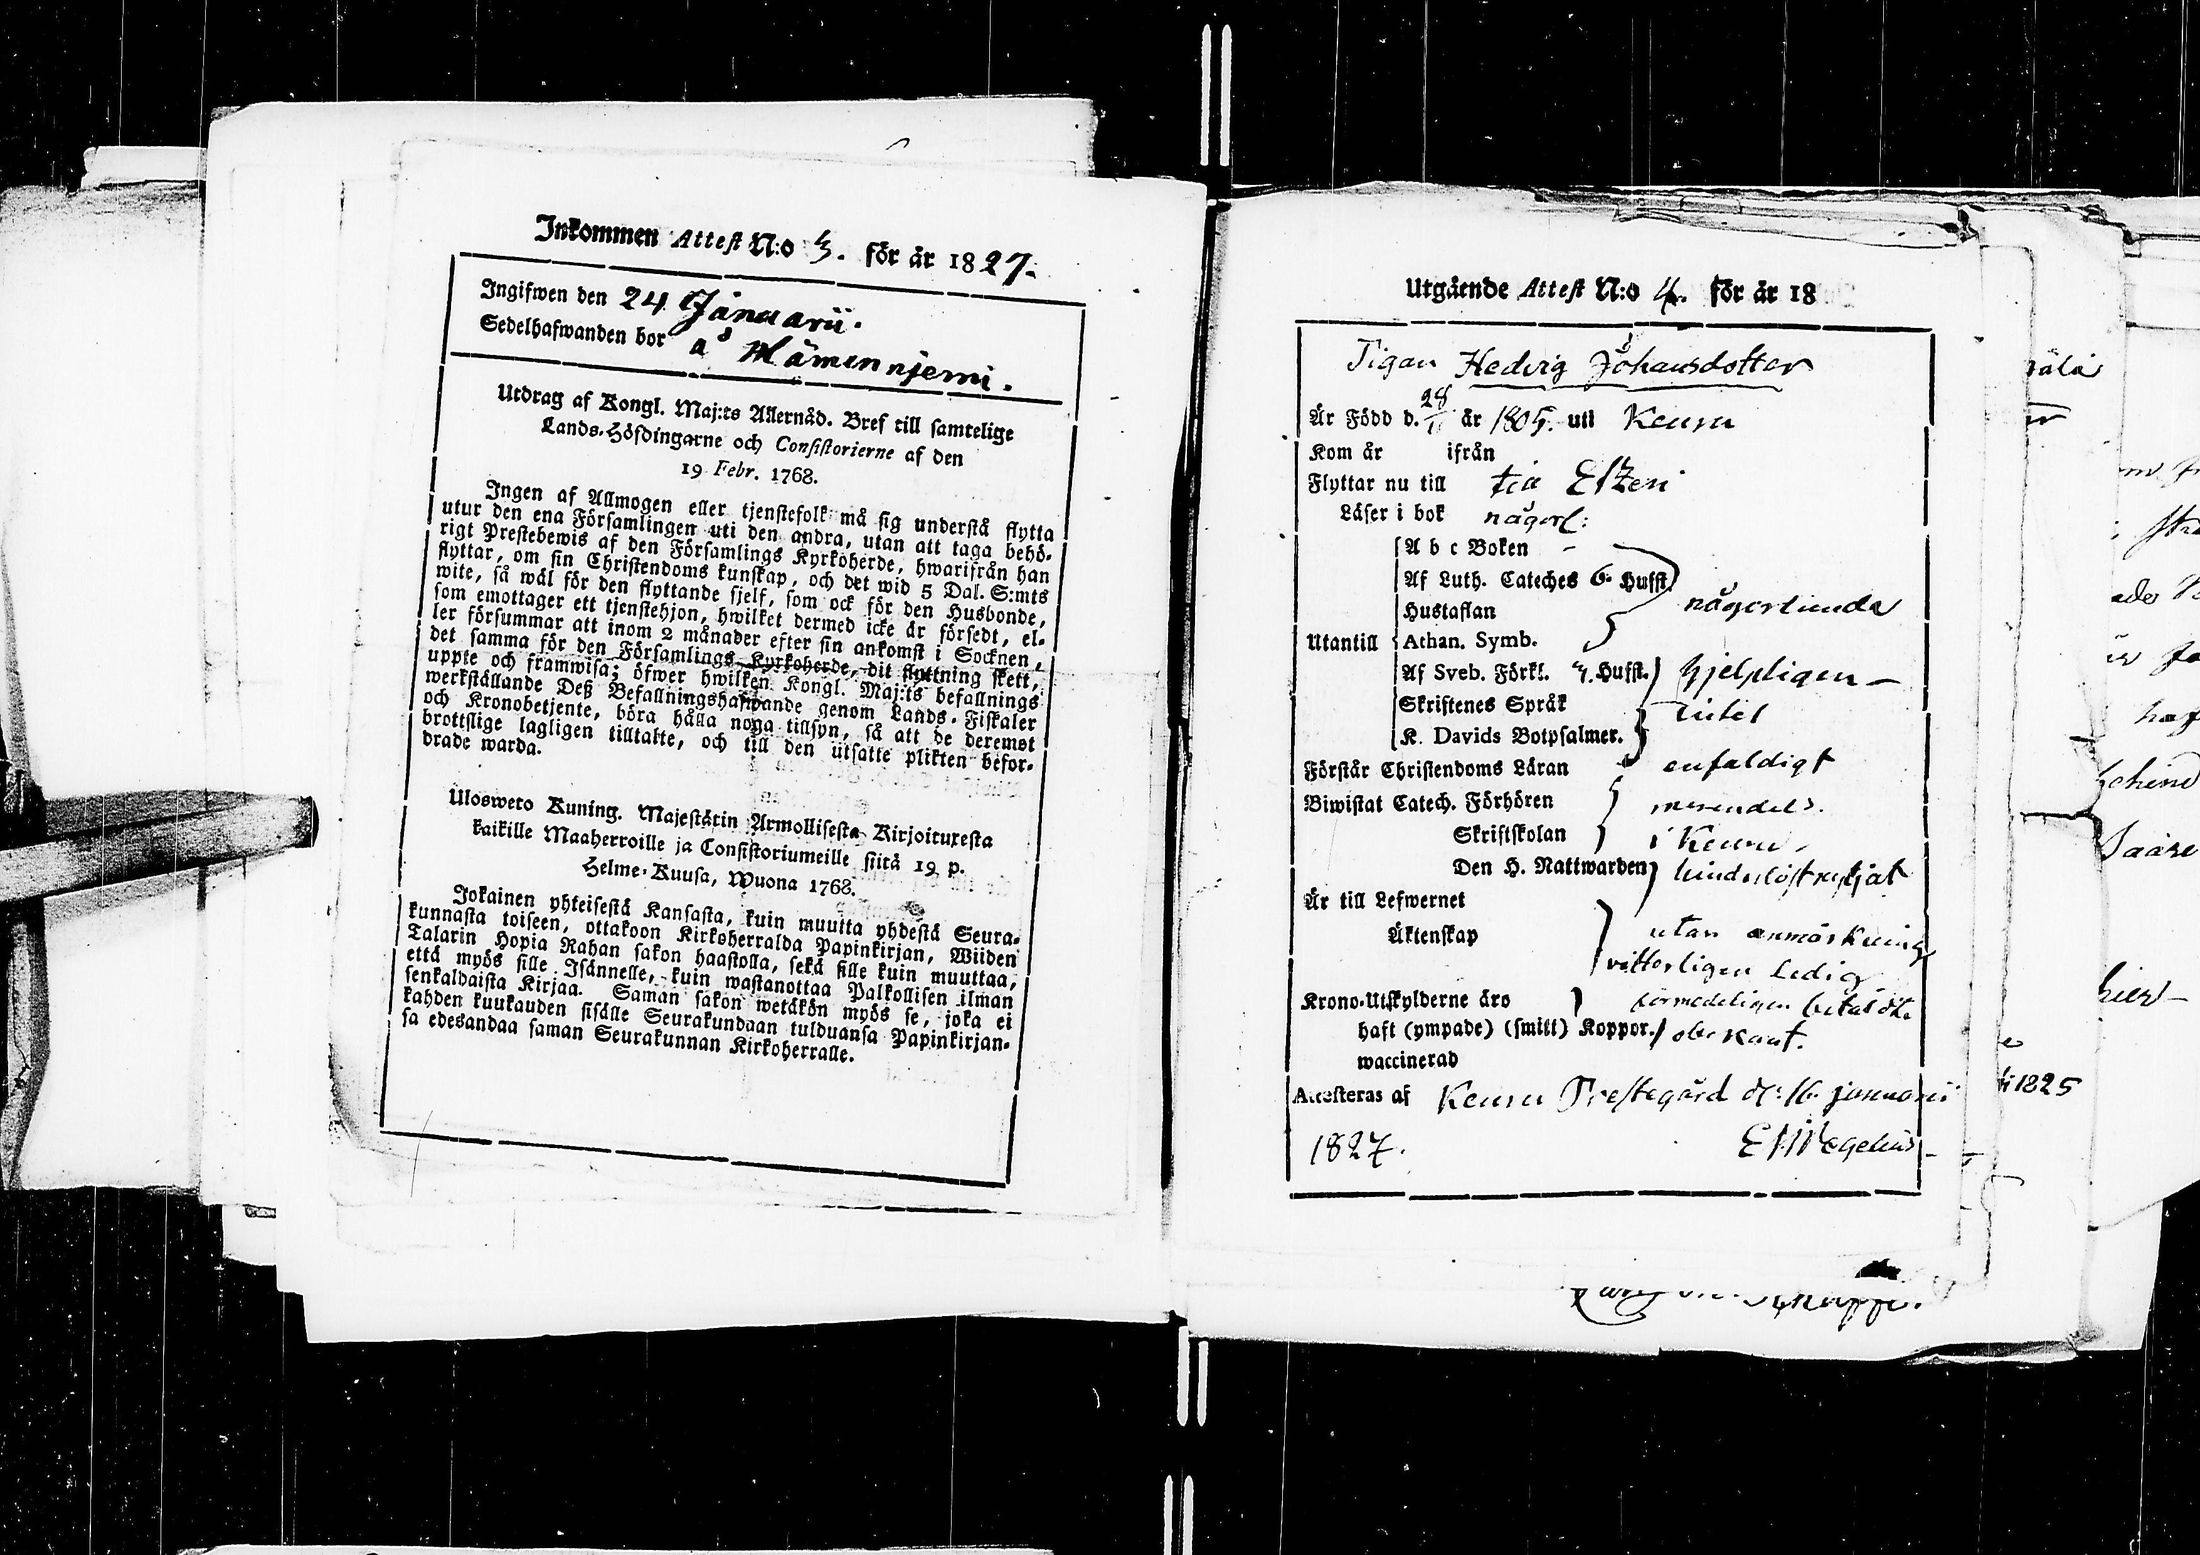 Inkommen Attest N:o 3. för år 1827.
Ingifwen den 24 Januarii.
Sedelhafwanden bor å Mämminjemi.
Utdrag af Kongl. Maj:ts Allernåd. Bref till samtelige
Lands-Höfdingarne och Consistorierne af den
19 Febr. 1768.
Ingen af Allmogen eller tjenstefolk må sig understå flytta
utur den ena Församlingen uti den andra, utan att taga behö-
rigt Prestebewis af den Församlings Kyrkoherde, hwarifrån han
flyttar, om sin Christendoms kunskap, och det wid 5 Dal. S:mts
wite, så wäl för den flyttande sjelf, som ock för den Husbonde,
som emottager ett tjenstehjon, hwilket dermed icke är försedt, el-
ler försummar att inom 2 månader efter sin ankomst i Socknen,
det samma för den Församlings Kyrkoherde, dit flyttning skett,
uppte och framwisa; öfwer hwilken Kongl. Maj:ts befallnings
werkställande Deß Befallningshafwande genom Lands-Fiskaler
och Kronobetjente, böra hålla noga tillsyn, så att de deremot
brottslige lagligen tilltalte, och till den utsatte plikten befor-
drade warda.
Ulosweto Kuning. Majestätin Armollisesta Kirjoituxesta
kaikille Maaherroille ja Consistoriumeille siitä 19 p.
Helme-Kuusa, Wuona 1768.
Jokainen yhteisestä Kansasta, kuin muutta yhdestä Seura-
kunnasta toiseen, ottakoon Kirkoherralda Papinkirjan, Wiiden
Talarin Hopia Rahan sakon haastolla, sekä sille kuin muuttaa,
että myös sille Isännelle, kuin wastanottaa Palkollisen ilman
senkaldaista Kirjaa. Saman sakon wetäkön myös se, joka ei
kahden kuukauden sisälle Seurakundaan tulduansa Papinkirjan-
sa edesandaa saman Seurakunnan Kirkoherralle.
Utgående Attest N:o 4. för år 18
Pigan Hedvig Johansdotter
Är Född d. 28 år 1805. uti Keuru
Kom år ifrån
Flyttar nu till
Läser i bok någorl:
A b c Boken -
Af Luth. Cateches 6. Hufst.
Hustaflan någorlunda
Utantill Athan. Symb.
Af Sveb. Förkl. 7. Hufst. hjelpligen –
Skriftenes Språk
K. Davids Botpsalmer.
Förstår Christendoms Läran enfaldigt
Biwistat Catech. Förhören merendels.
Skriftskolan i Keuru.
Den H. Nattwarden
Är till Lefwernet
Äktenskap utan anmärkning
vitterligen Ledig
Krono-Utskylderne äro
haft (ympade) (smitt) Koppor. obekant.
waccinerad
Attesteras af Keuru Prestegård d: 16 januarii
1827.
1825